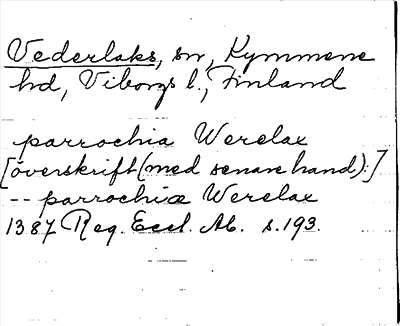 Vederlaks, sn, Kymmene
hd, Viborgs l., Finland
parrochia Werelax
[överskrift (med senare hand).]
-- parrochiæ Werelax
1387 Reg. Eccl. Ab. s.193.